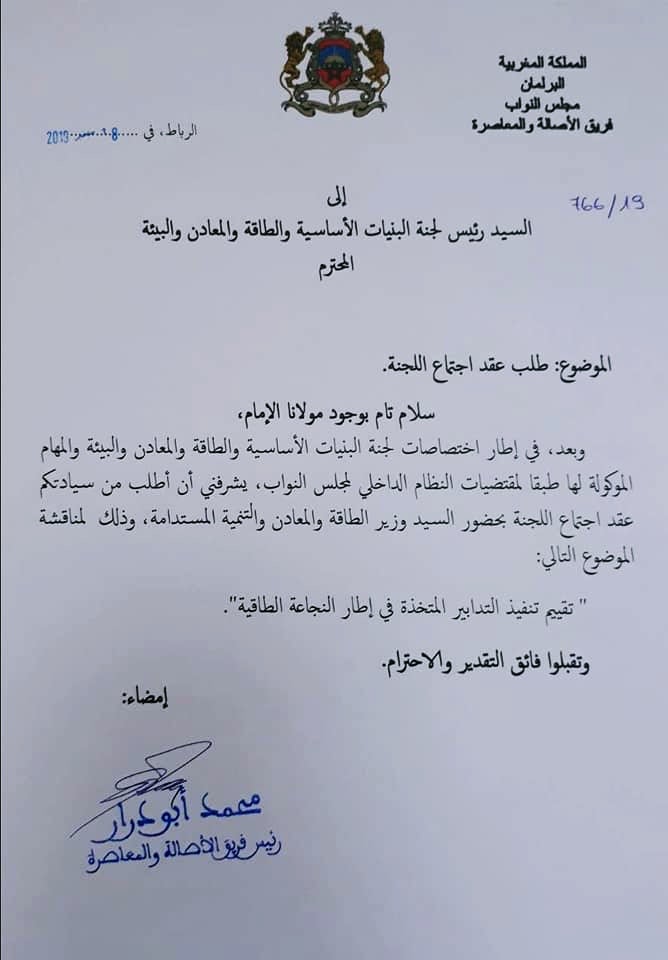 المملكة المغربية
البرلمان
مجلس النواب
فريق الأصالة والمعاصرة
الرباط، في ..... 2019
766/19
إلى
السيد رئيس لجنة البنيات الأساسية والطاقة والمعادن والبيئة
المحترم
الموضوع: طلب عقد اجتماع اللجنة.
سلام تام بوجود مولانا الإمام،
وبعد، في إطار اختصاصات لجنة البنيات الأساسية والطاقة والمعادن والبيئة والمهام
الموكولة لها طبقا لمقتضيات النظام الداخلي لمجلس النواب، يشرفني أن أطلب من سيادتكم
عقد اجتماع اللجنة بحضور السيد وزير الطاقة والمعادن والتنمية المستدامة، وذلك لمناقشة
الموضوع التالي:
" تقييم تنفيذ التدابير المتخذة في إطار النجاعة الطاقية".
وتقبلوا فائق التقدير والاحترام.
إمضاء:
محمد أبودرار
رئيس فريق الأصالة والمعاصرة